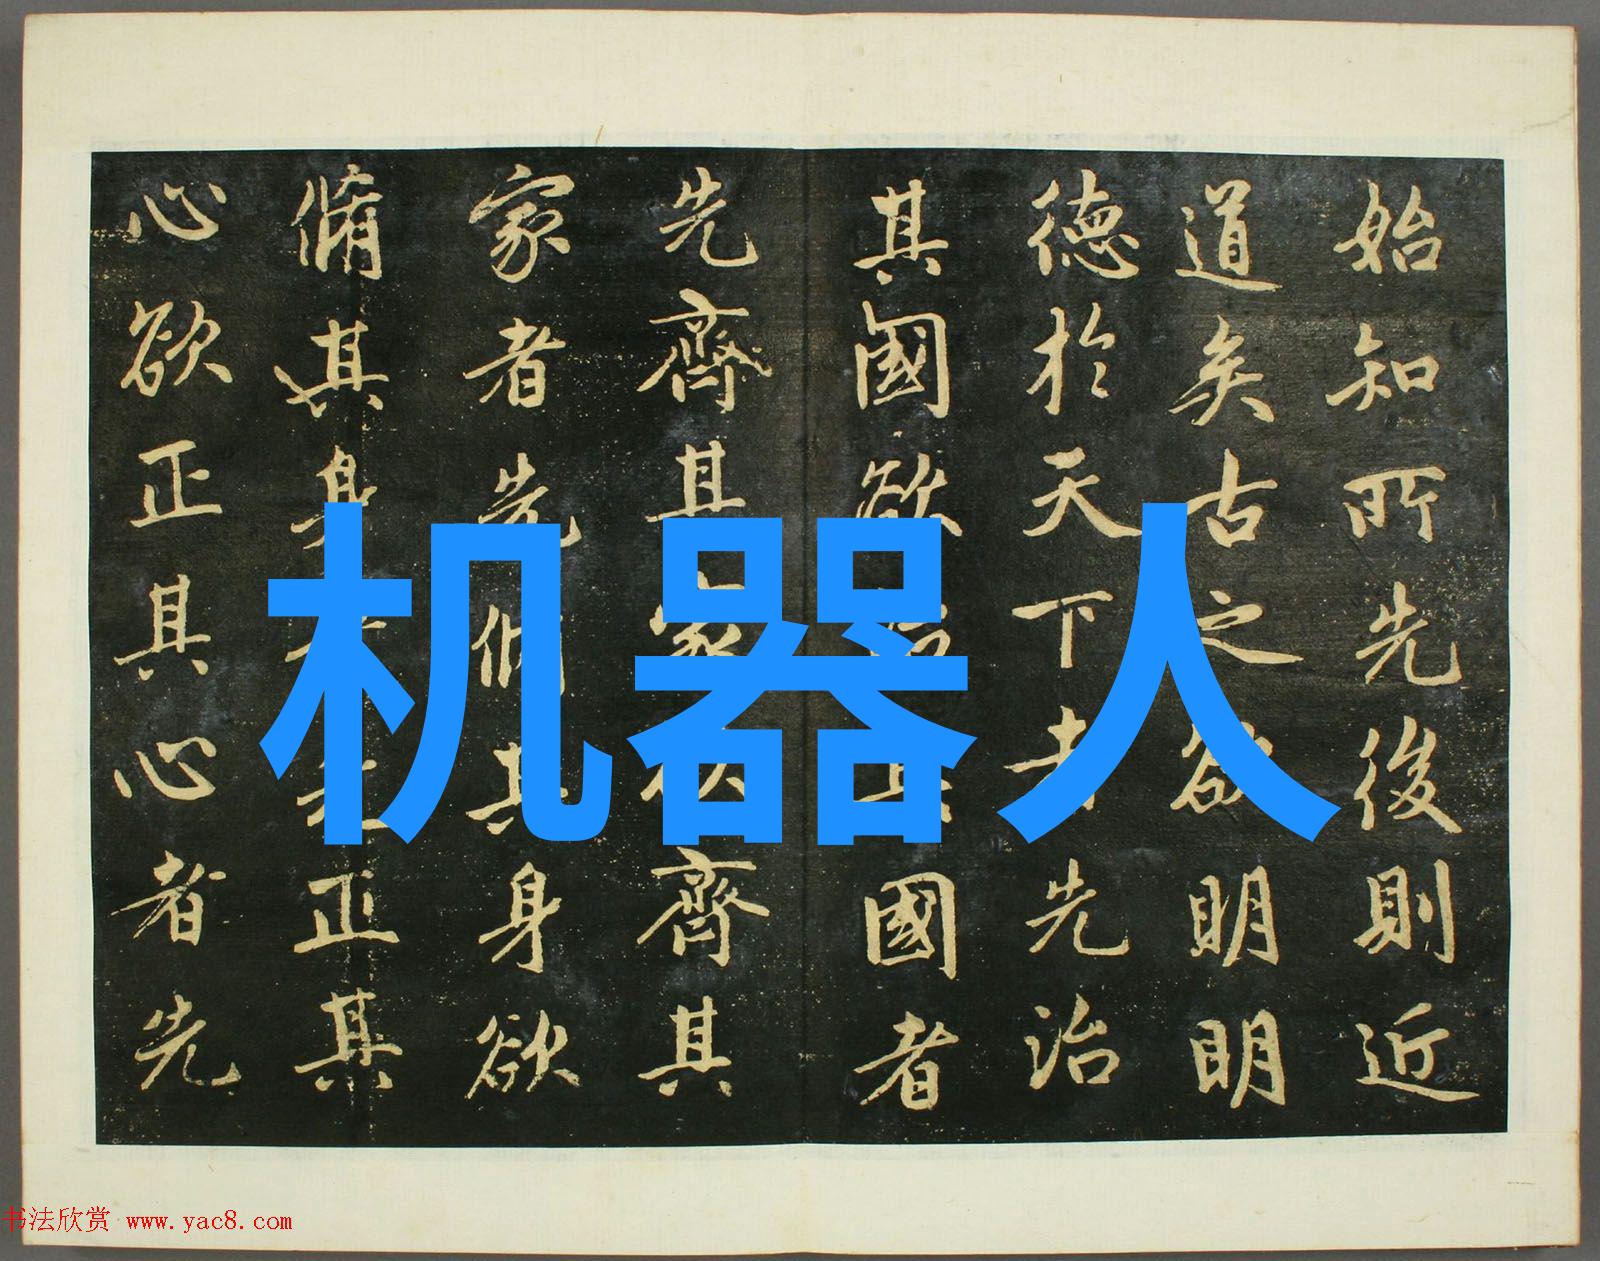 始知所先後則近
道矣古之欲明明
德於天下者先治
其國欲治其國者
先齊其家欲齊其
家者先脩其身欲
脩其身者先正其
心欲正其心者先
机器人
书法欣赏 www.yac8.com